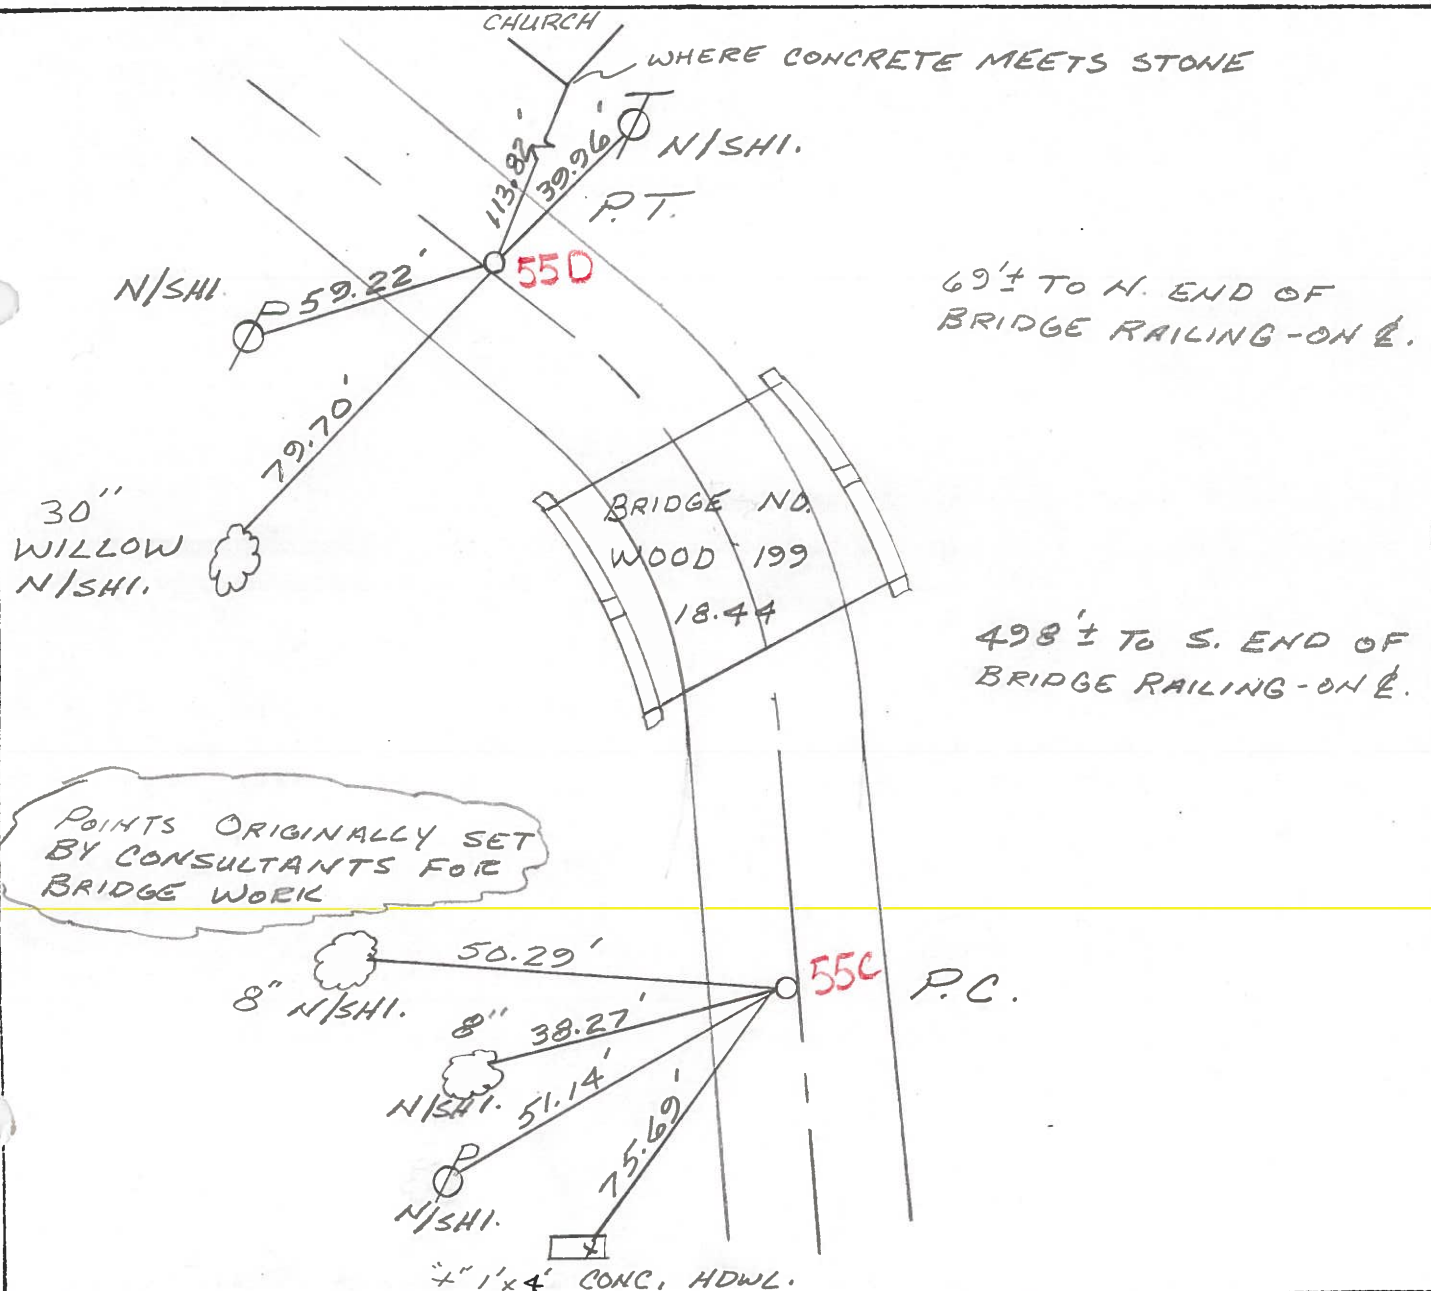 CHURCH
WHERE CONCRETE MEETS STONE
113.82'
39.96'
N/SHI.
P.T.
55D
N/SHI.
P
59.22'
69'± TO N. END OF
BRIDGE RAILING-ON ℄.
79.70'
30"
WILLOW
N/SHI.
BRIDGE NO.
WOOD 199
18.44
498'± TO S. END OF
BRIDGE RAILING-ON ℄.
POINTS ORIGINALLY SET
BY CONSULTANTS FOR
BRIDGE WORK
50.29'
8" N/SHI.
55C
P.C.
8"
38.27'
N/SHI.
51.14'
P
N/SHI.
75.69'
x
"x" 1'x4' CONC. HDWL.